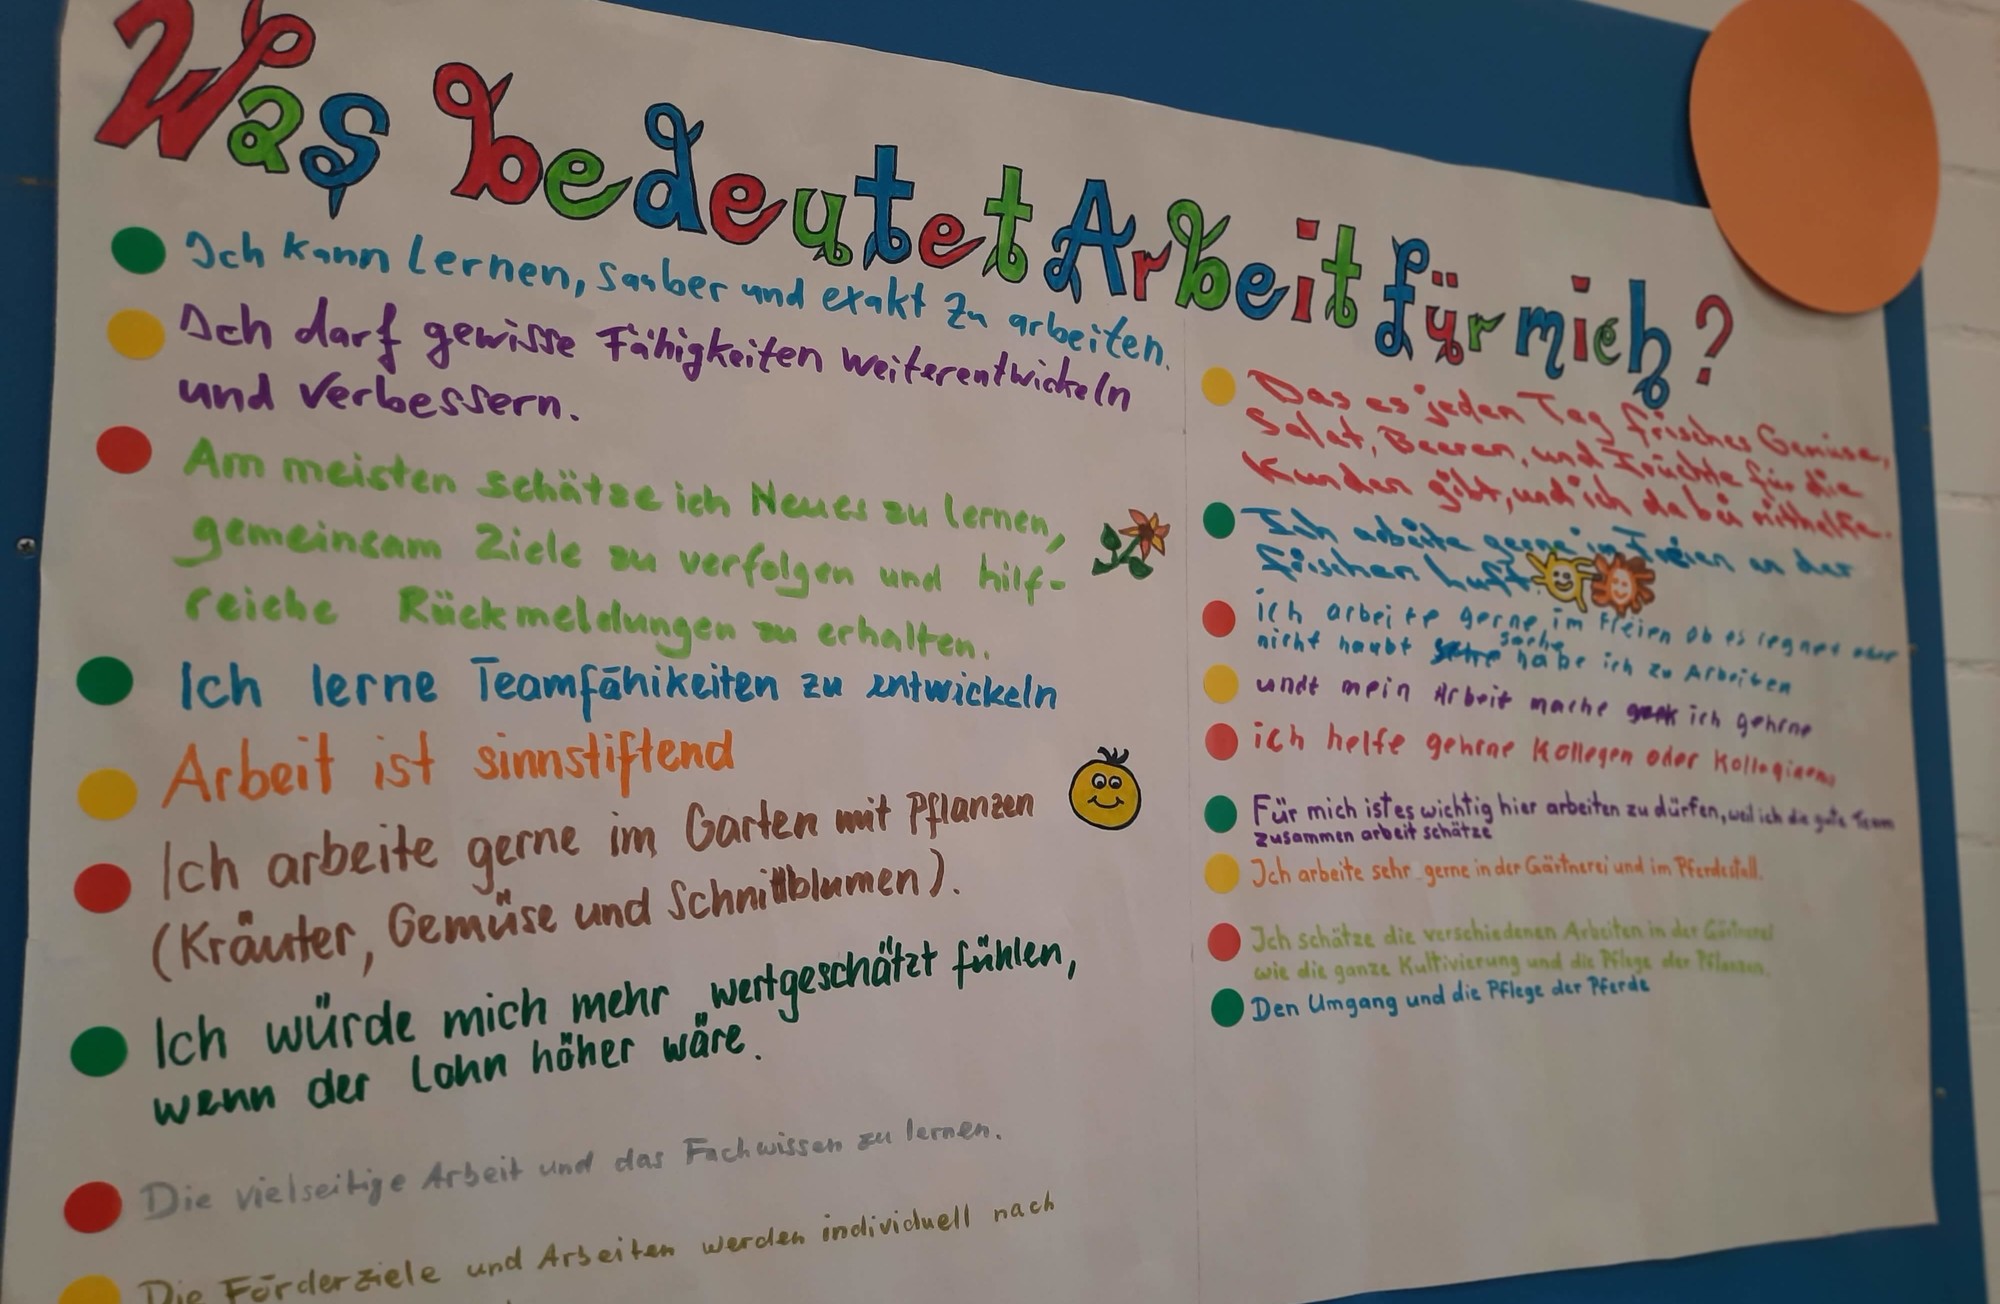 Was bedeutet Arbeit für mich?
Ich kann lernen, sauber und exakt zu arbeiten.
Ich darf gewisse Fähigkeiten weiterentwickeln
und verbessern.
Am meisten schätze ich Neues zu lernen,
gemeinsam Ziele zu verfolgen und hilf-
reiche Rückmeldungen zu erhalten.
Ich lerne Teamfähikeiten zu entwickeln
Arbeit ist sinnstiftend
Ich arbeite gerne im Garten mit Pflanzen
(Kräuter, Gemüse und Schnittblumen).
Ich würde mich mehr wertgeschätzt fühlen,
wenn der Lohn höher wäre.
Die vielseitige Arbeit und das Fachwissen zu lernen.
Die Förderziele und Arbeiten werden individuell nach
Das es jeden Tag frisches Gemüse,
Salat, Beeren, und Früchte für die
Kunden gibt, und ich dabei mithelfe.
Ich arbeite gerne im Freien an der
frischen Luft.
ich arbeite gerne im Freien ob es regnet oder
nicht haubt sache habe ich zu Arbeiten
undt mein Arbeit mache ich gehrne
ich helfe gehrne Kollegen oder
Für mich ist es wichtig hier arbeiten zu dürfen, weil ich die gute Team
zusammen arbeit schätze
Ich arbeite sehr gerne in der Gärtnerei und im Pferdestall.
Ich schätze die verschiedenen Arbeiten in der Gärtnerei
wie die ganze Kultivierung und die Pflege der Pflanzen.
Den Umgang und die Pflege der Pferde